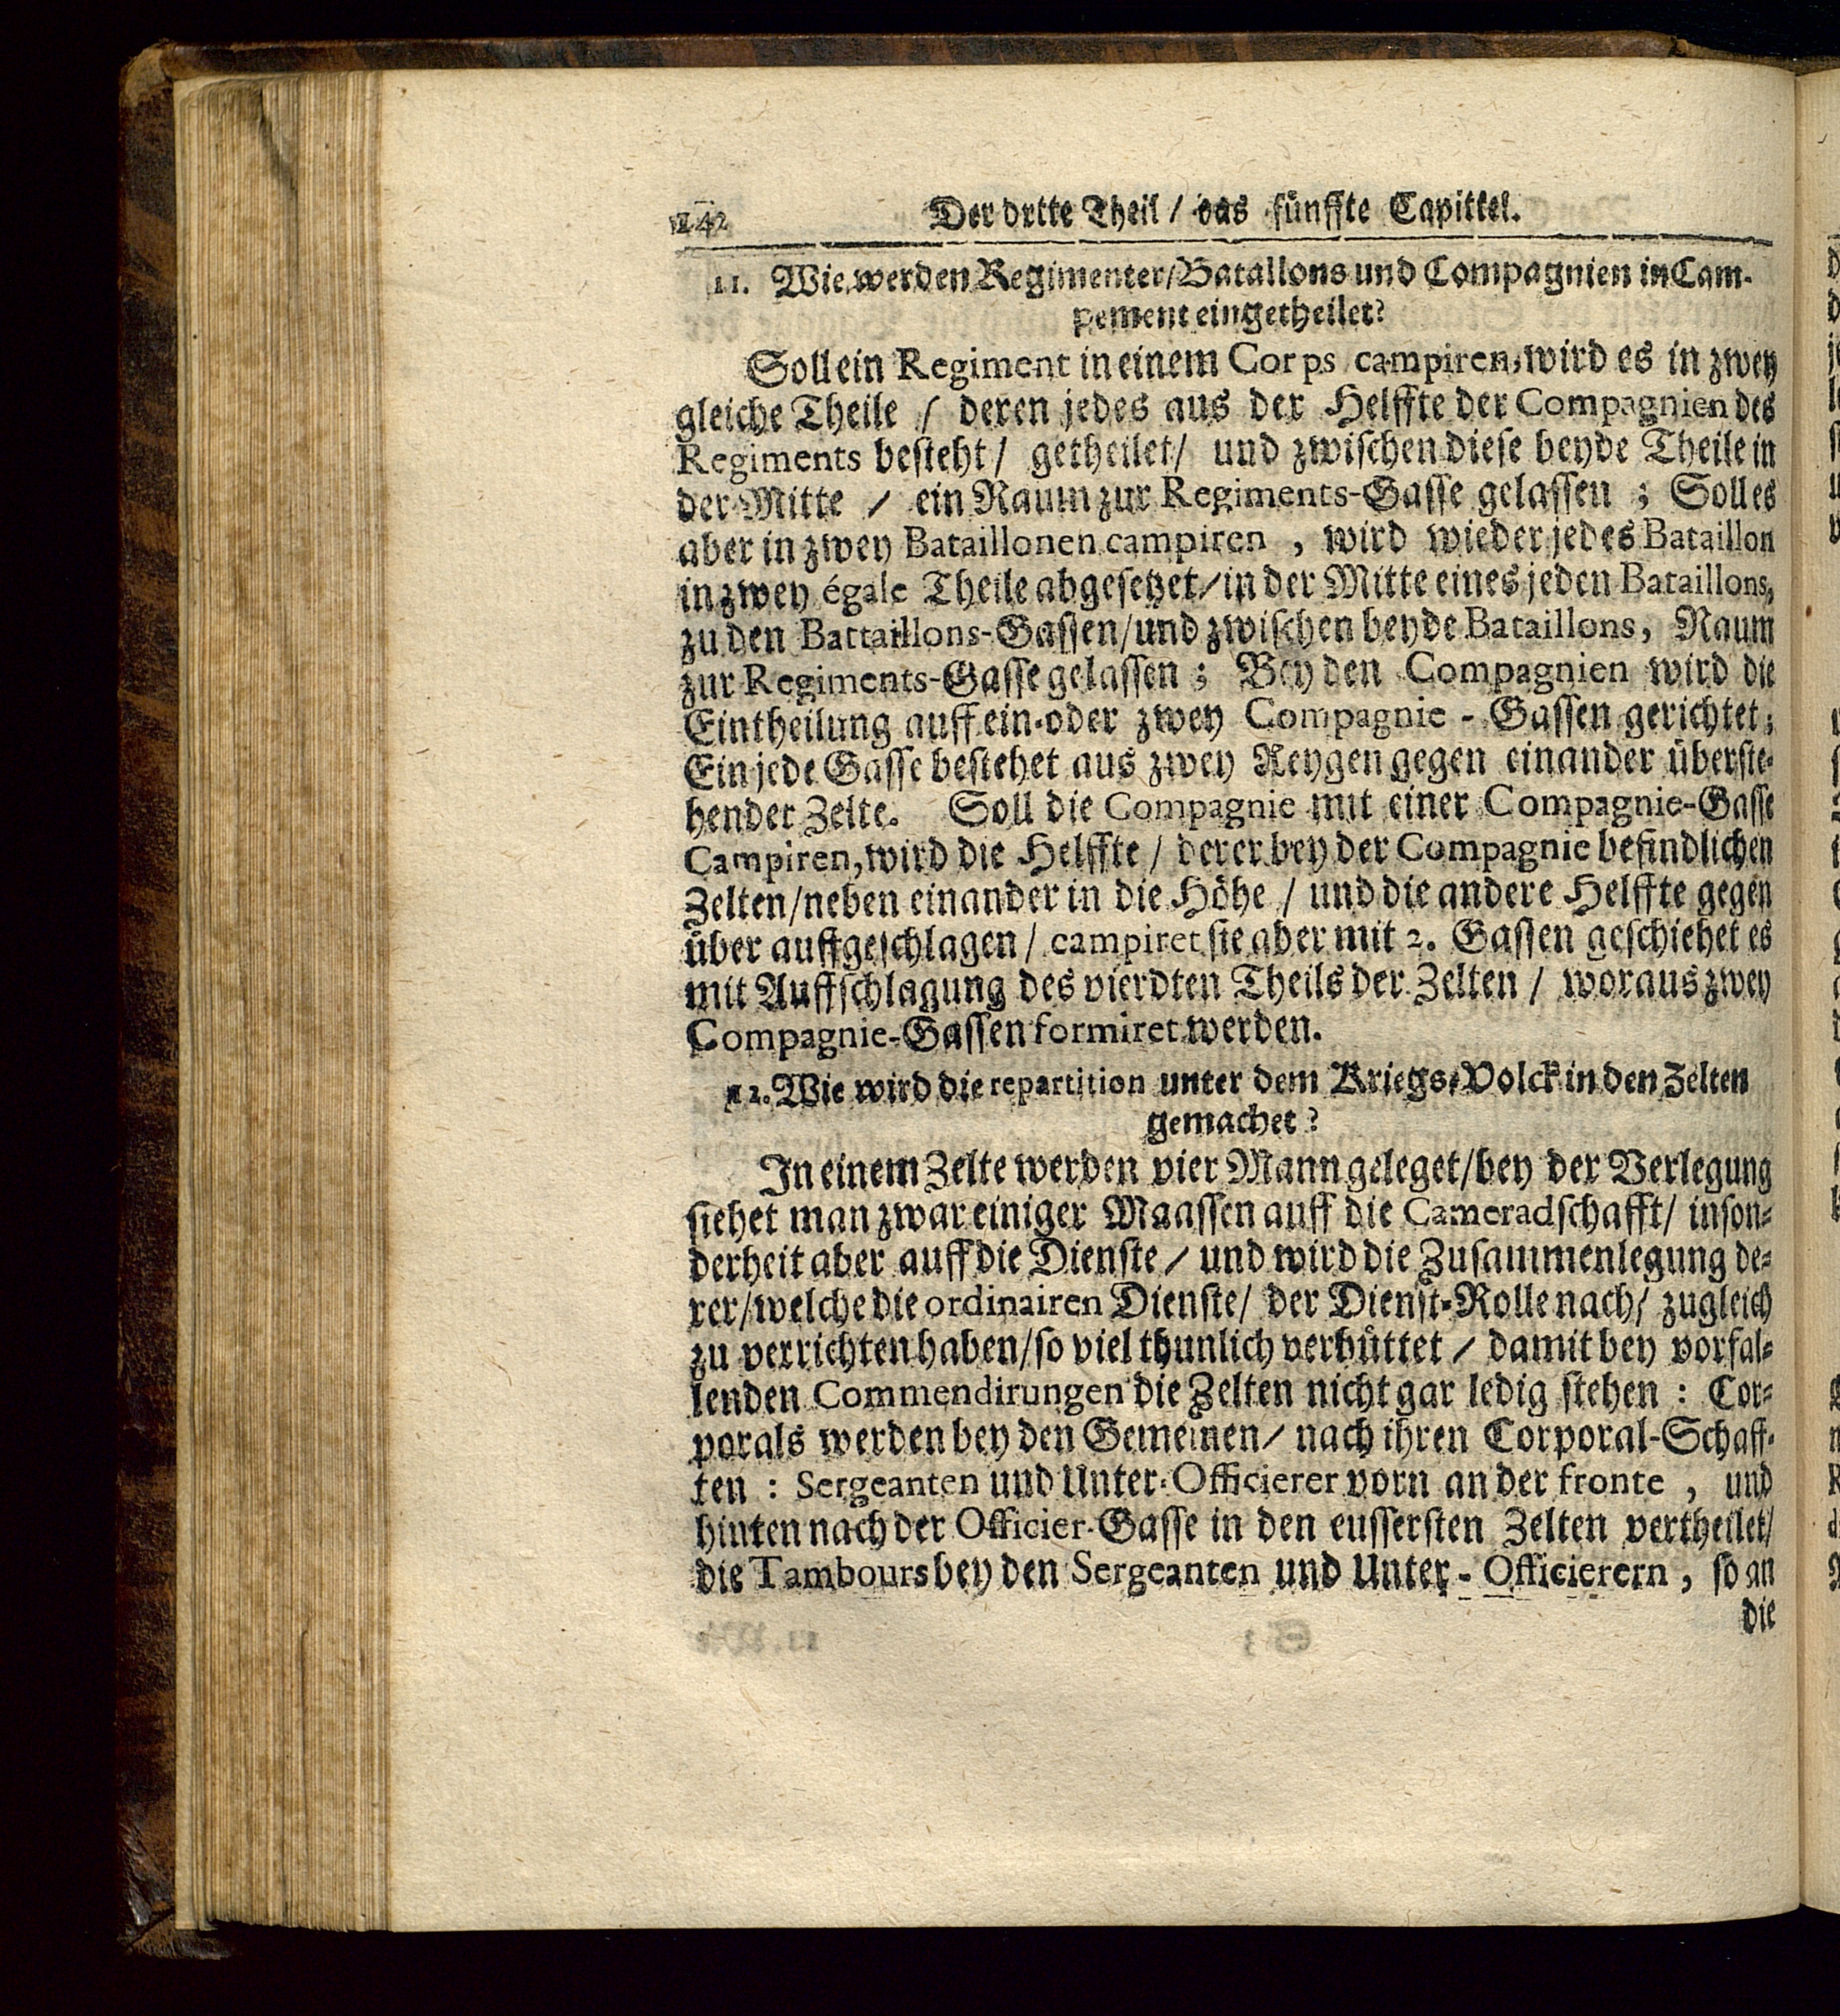 142 Der dritte Theil / das fünffte Capittel.
11. Wie werden Regimenter/Batallons und Compagnien in Cam-
pement eingetheilet?
Soll ein Regiment in einem Corps campiren, wird es in zwey
gleiche Theile / deren jedes aus der Helffte der Compagnien des
Regiments besteht / getheilet / und zwischen diese beyde Theile in
der Mitte / ein Raum zur Regiments-Gasse gelassen ; Soll es
aber in zwey Bataillonen campiren , wird wieder jedes Bataillon
in zwey égale Theile abgesetzet / in der Mitte eines jeden Bataillons,
zu den Battaillons-Gassen / und zwischen beyde Bataillons, Raum
zur Regiments-Gasse gelassen ; Bey den Compagnien wird die
Eintheilung auff ein-oder zwey Compagnie - Gassen gerichtet ;
Ein jede Gasse bestehet aus zwey Reygen gegen einander überste-
hender Zelte. Soll die Compagnie mit einer Compagnie-Gasse
Campiren, wird die Helffte / derer bey der Compagnie befindlichen
Zelten / neben einander in die Höhe / und die andere Helffte gegen
über auffgeschlagen / campiret sie aber mit 2. Gassen geschiehet es
mit Auffschlagung des vierdten Theils der Zelten / woraus zwey
Compagnie-Gassen formiret werden.
12. Wie wird die repartition unter dem Kriegs-Volck in den Zelten
gemachet ?
In einem Zelte werden vier Mann geleget / bey der Verlegung
siehet man zwar einiger Maassen auff die Cameradschafft / inson-
derheit aber auff die Dienste / und wird die Zusammenlegung de-
rer / welche die ordinairen Dienste / der Dienst-Rolle nach / zugleich
zu verrichten haben / so viel thunlich verhüttet / damit bey vorfal-
lenden Commendirungen die Zelten nicht gar ledig stehen : Cor-
porals werden bey den Gemeinen / nach ihren Corporal-Schaff-
ten : Sergeanten und Unter-Officierer vorn an der fronte , und
hinten nach der Officier-Gasse in den eussersten Zelten vertheilet /
die Tambours bey den Sergeanten und Unter - Officierern , so an
die